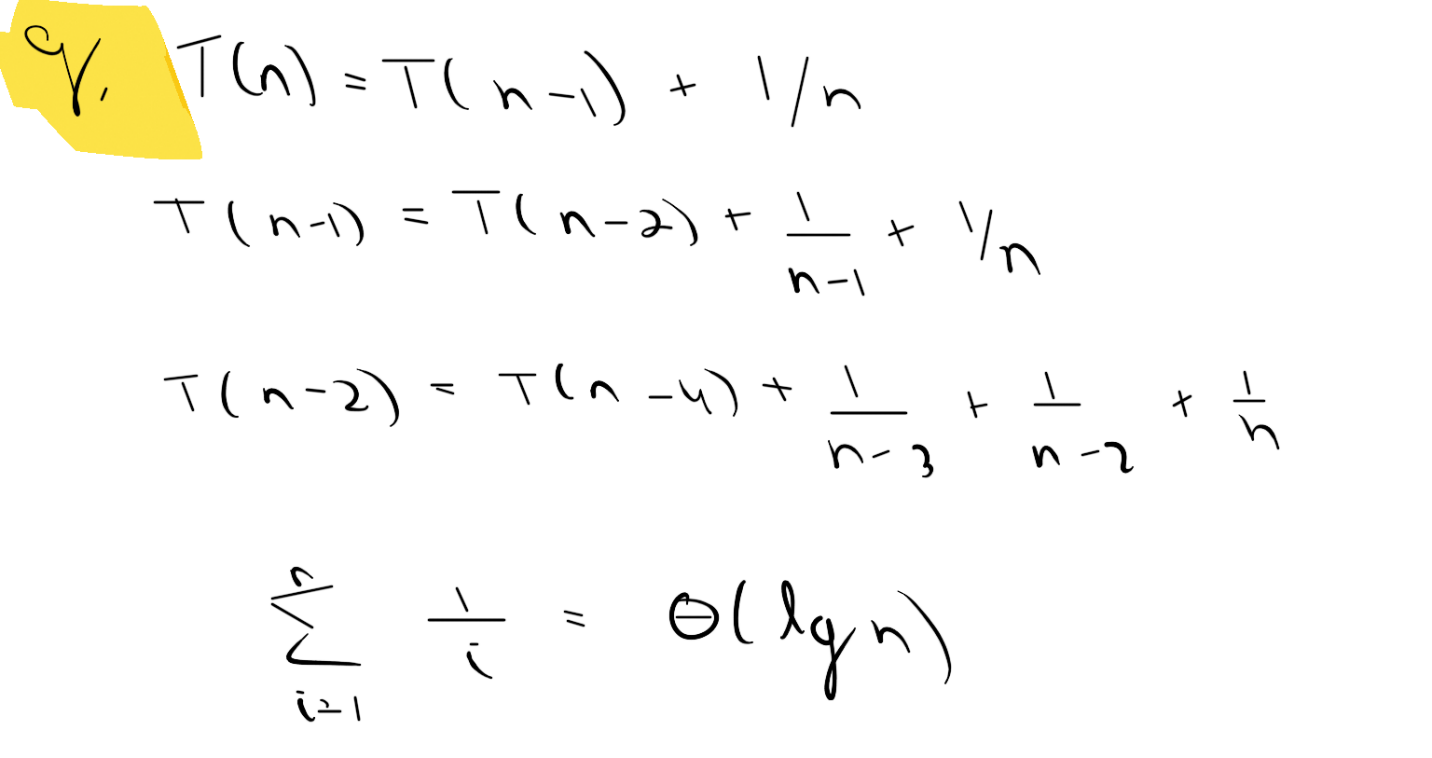 9. T(n) = T(n-1) + 1/n
T(n-1) = T(n-2) + 1/(n-1) + 1/n
T(n-2) = T(n-4) + 1/(n-3) + 1/(n-2) + 1/n
n ∑ i=1 1/i = Θ(lg n)